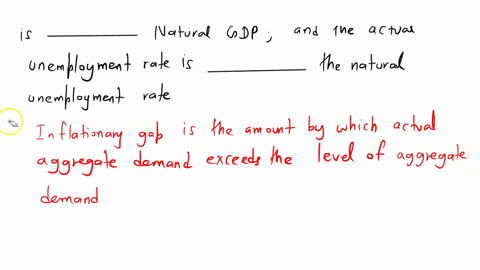 is __________ Natural GDP, and the actual
unemployment rate is __________ the natural
unemployment rate
Inflationary gap is the amount by which actual
aggregate demand exceeds the level of aggregate
demand